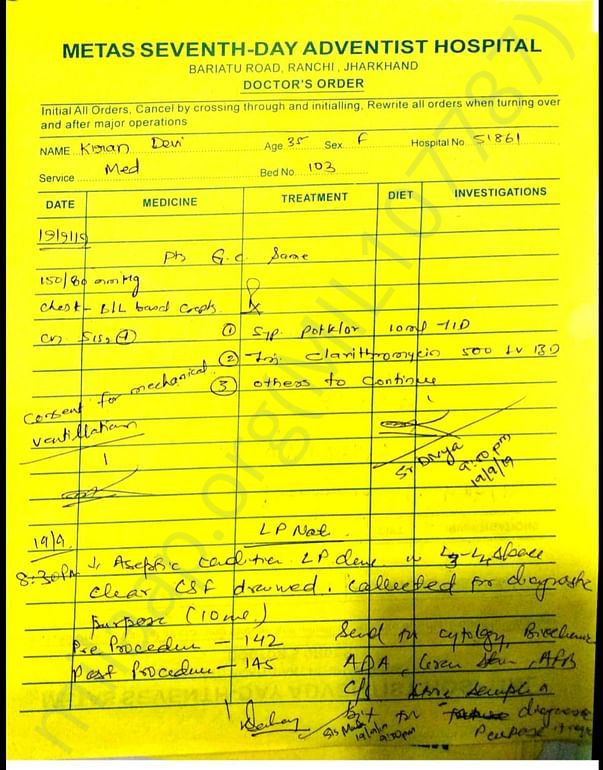 METAS SEVENTH-DAY ADVENTIST HOSPITAL
BARIATU ROAD, RANCHI, JHARKHAND
DOCTOR'S ORDER
Initial All Orders, Cancel by crossing through and initialling, Rewrite all orders when turning over
and after major operations
NAME Kiran Devi Age 35 Sex F Hospital No 51861
Service Med Bed No 103
DATE MEDICINE TREATMENT DIET INVESTIGATIONS
19/9/19
Pts G.C. Same
150/80 mmHg
chest - B/L basal creps.
S1S2 (+) ① Syp. Potklor 10ml TID
② Inj. Clarithromycin 500 IV BD
Consent for mechanical ③ others to Continue
ventillation
Sr Divya
9:00 pm
19/9/19
LP Note
19/9.
8:30PM Aseptic condition LP done in L3-L4 space
clear CSF drained. Collected for diagnostic
purpose (10ml)
Pre Procedure - 142 Send for cytology, Biochem
Post Procedure - 145 ADA, Gram Stain, AFB
C/S
for diagnosis
19/9/19 Purpose
9:30pm